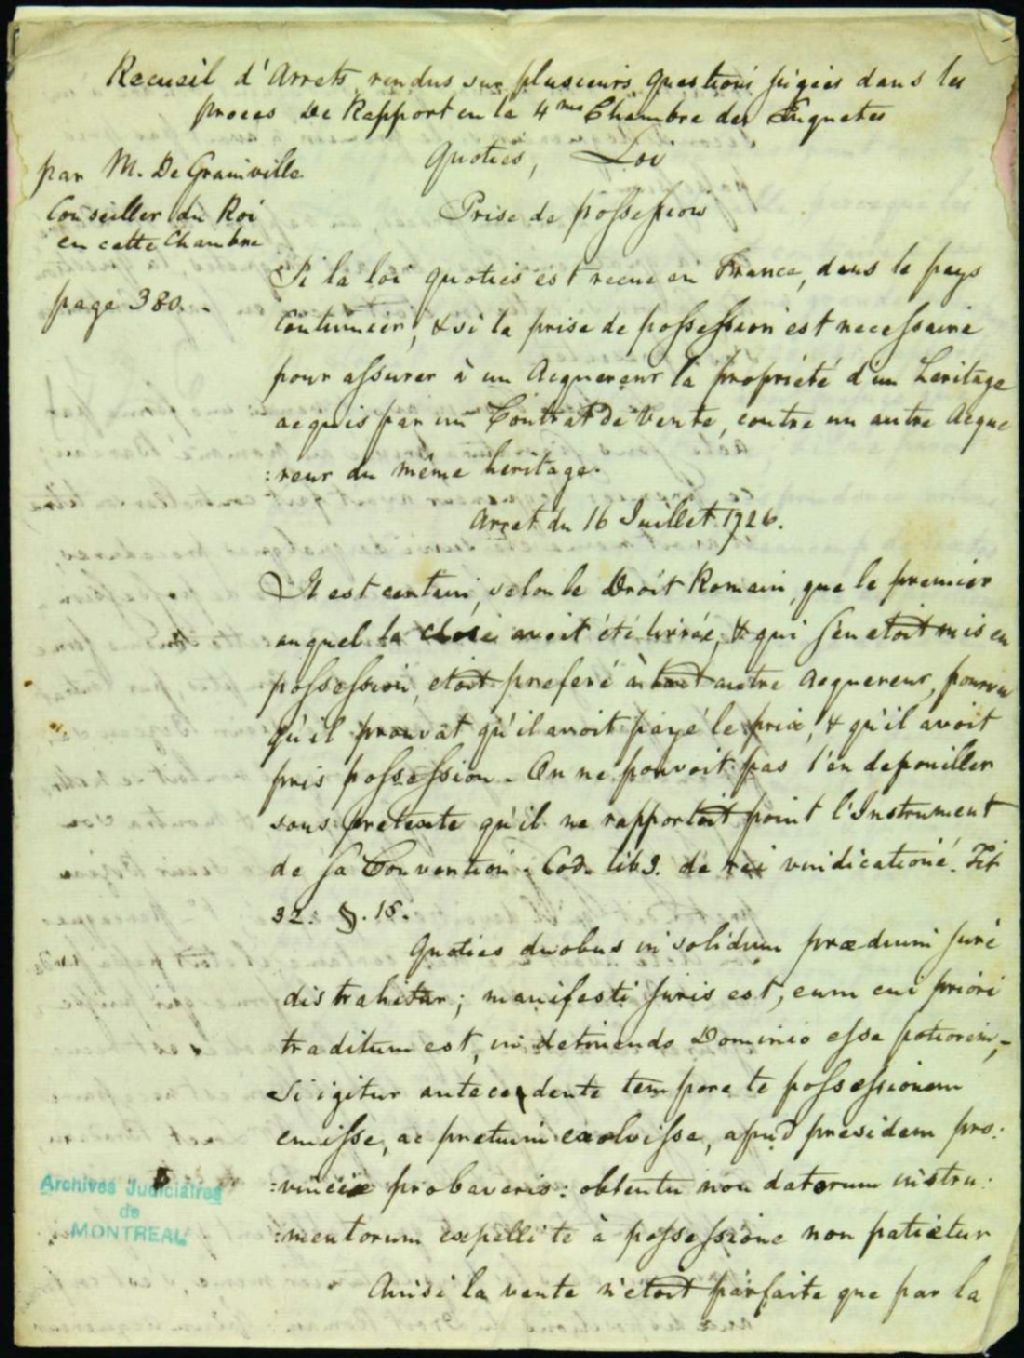 Recueil d'Arrets rendus sur plusieurs Questions jugées dans les
proces De Rapport en la 4me Chambre des Enquetes
par M. De Grainville
Conseiller du Roi
en cette Chambre
page 380.-
Quoties, Loi
Prise de possession
Si la loi quoties est recue en France, dans le pays
Coutumier, & si la prise de possession est necessaire
pour assurer à un Acquereur la propriété d'un Heritage
acquis par un Contrat de Vente, contre un autre Acque
:reur du même heritage.
Arret du 16 Juillet 1726.
Il est certain, selon le Droit Romain, que le premier
auquel la chose avoit été livrée, & qui s'en etoit mis en
possession, etoit preferé à tout autre Acquereur, pourvu
qu'il prouvât qu'il avoit payé le prix, & qu'il avoit
pris possession. On ne pouvoit pas l'en depouiller
sous pretexte qu'il ne rapportoit point l'Instrument
de sa Convention. Cod. lib 3. de rei vindicatione. Tit
32. §. 15.
Quoties duobus in solidum prædium jure
distrahitur; manifesti juris est, eum cui priori
traditum est, in detinendo Dominio esse potiorem,-
Si igitur antecedente tempore te possessionem
emisse, ac pretium exolvisse, apud præsidem pro:
:vinciæ probaveris: obtentu non datorum instru:
:mentorum expelli te à possessione non patietur
Ainsi la vente n'étoit parfaite que par la
Archives Judiciaires
de
MONTREAL